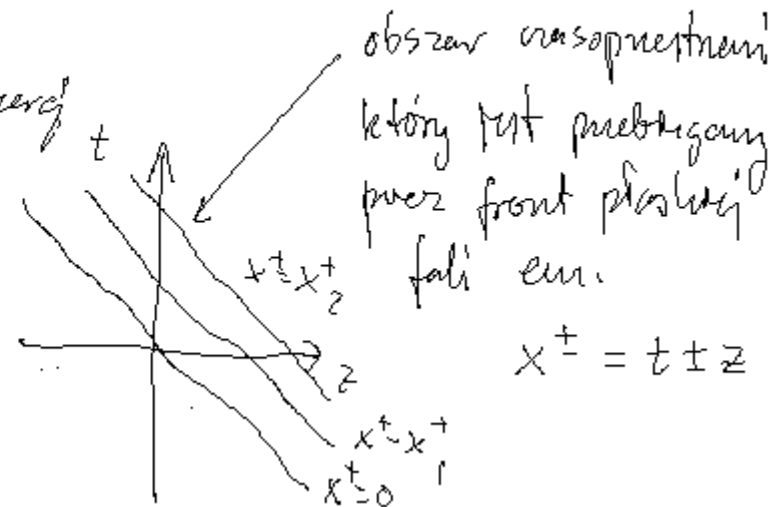 obszar czasoprzestrzeni
który jest przebiegany
przez front płaskiej
fali em.
t
x⁺=x⁺₂
x^± = t ± z
z
x⁺=x⁺₁
x⁺=0